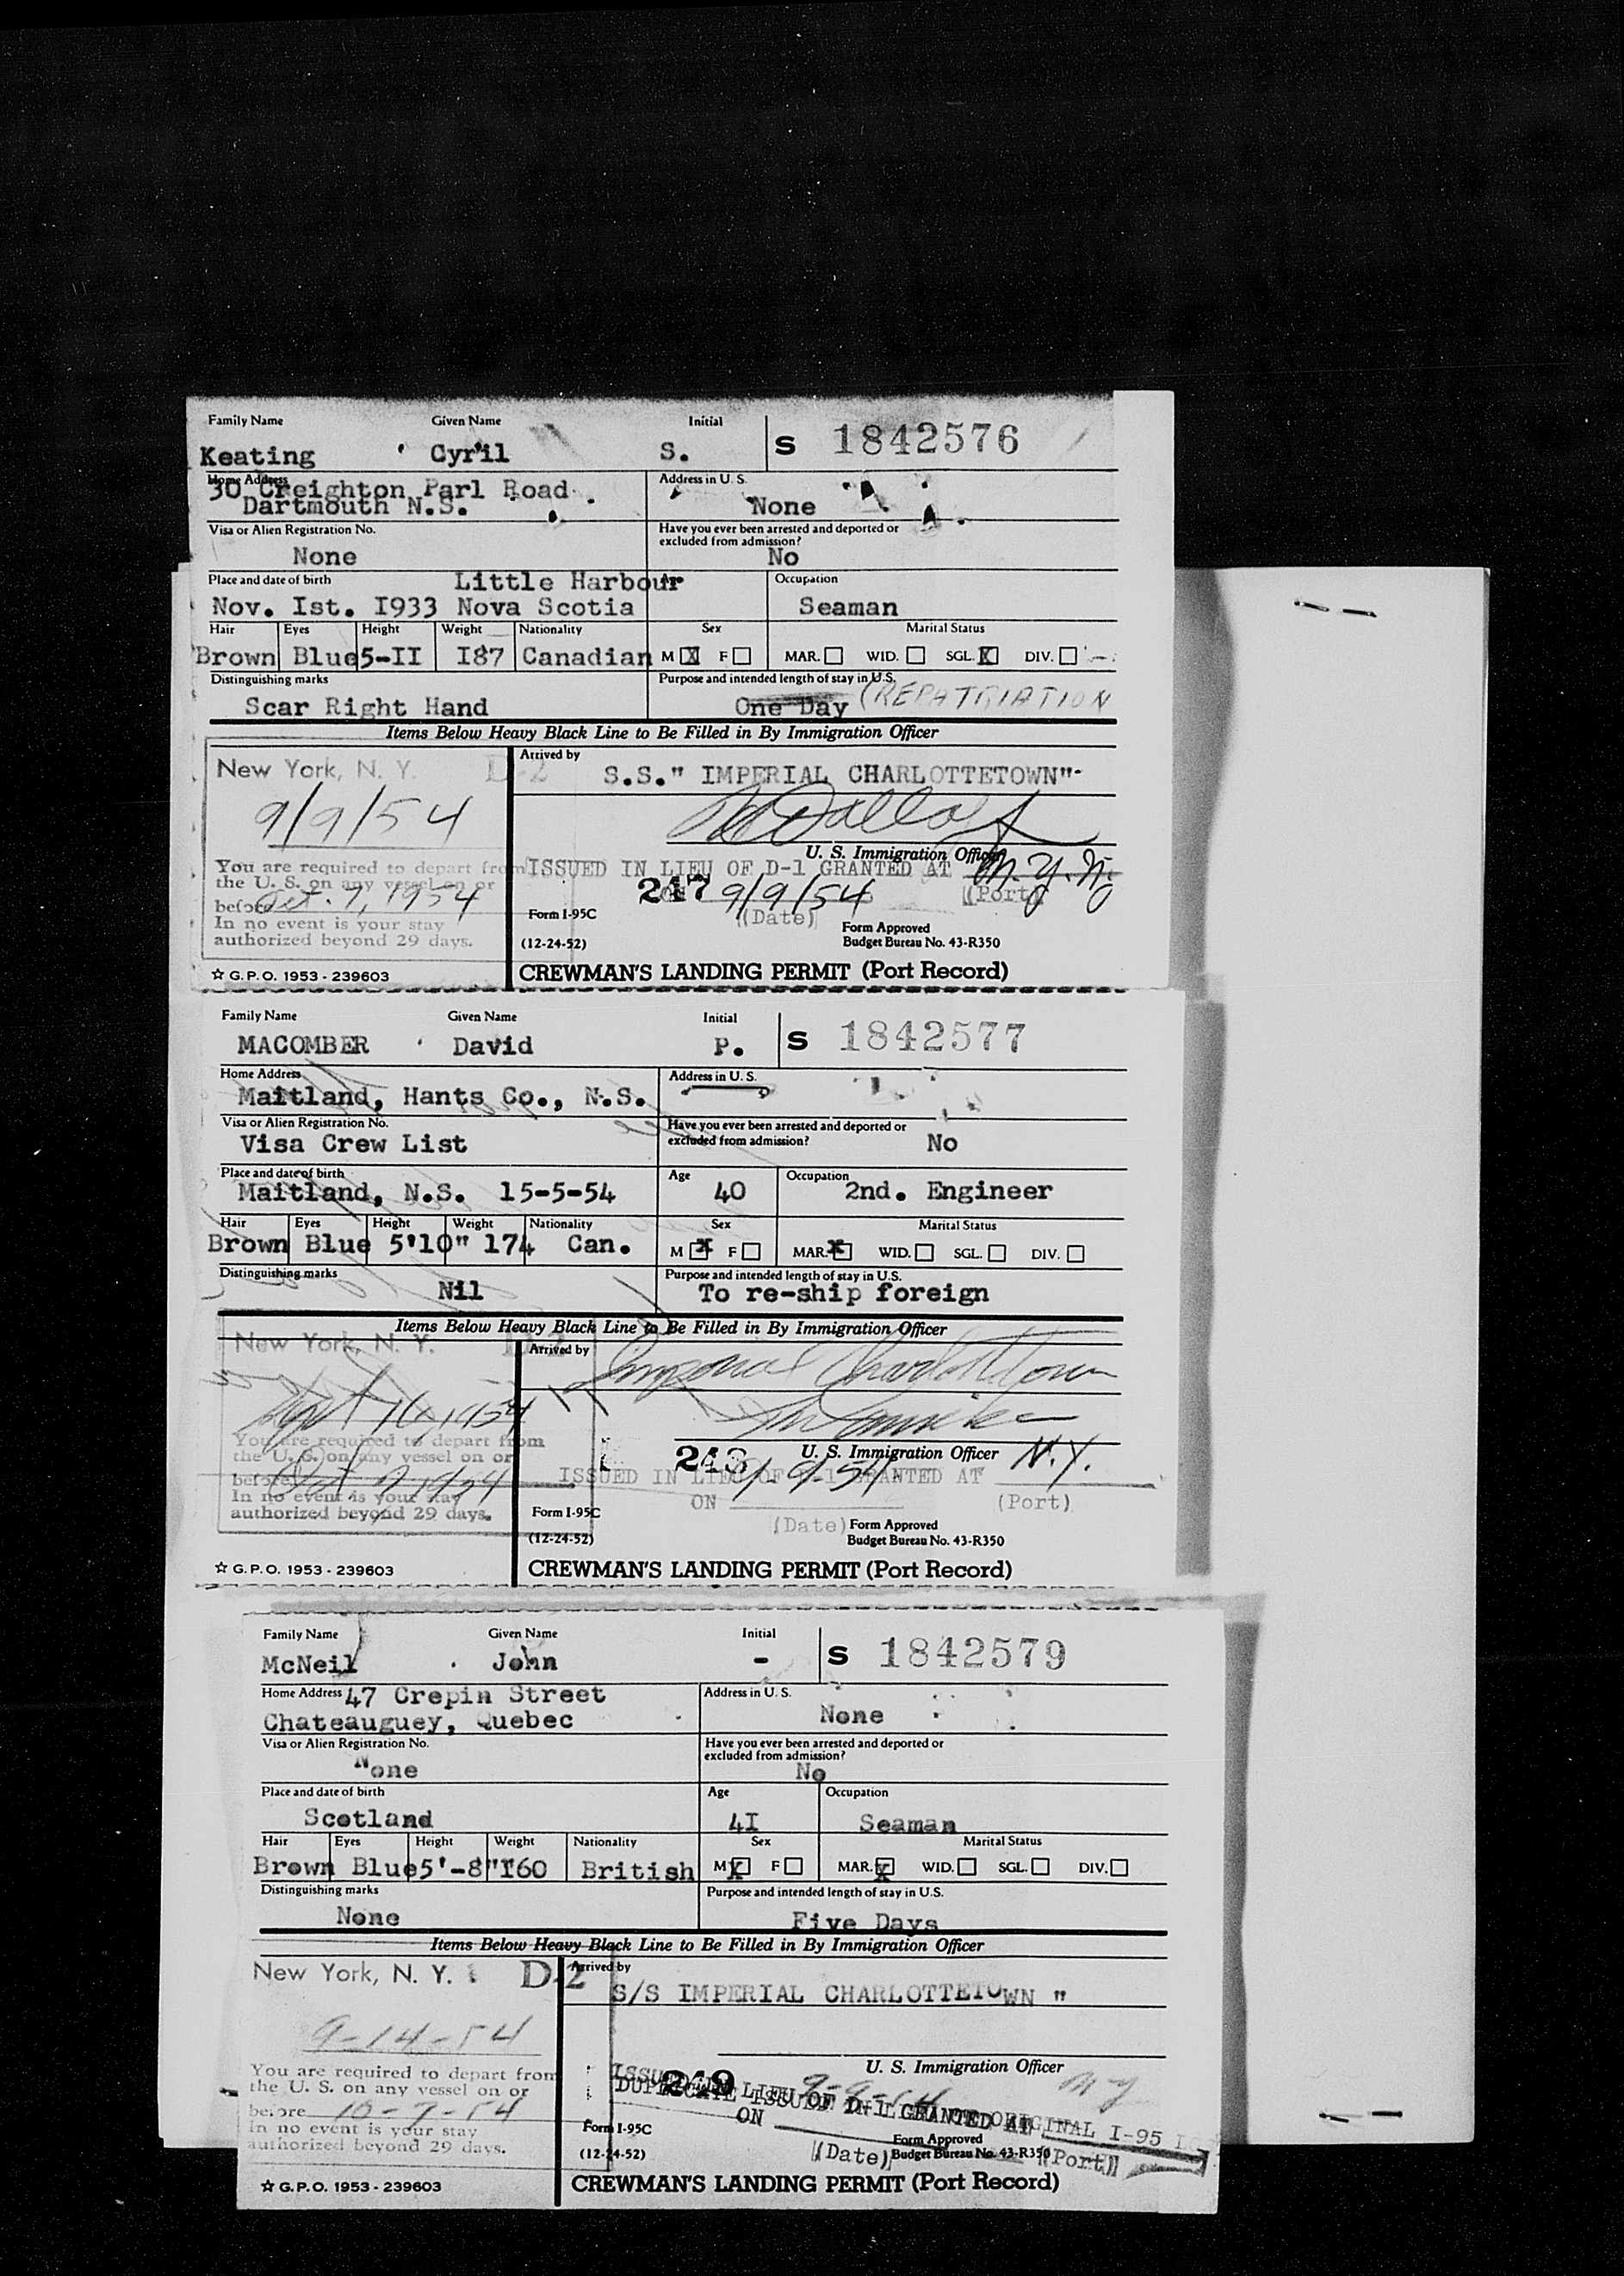 Family Name Given Name Initial
Keating Cyril S. S 1842576
Home Address Address in U. S.
30 Creighton Parl Road
Dartmouth N.S. None
Visa or Alien Registration No. Have you ever been arrested and deported or
excluded from admission?
None No
Place and date of birth Little Harbour Occupation
Nov. Ist. I933 Nova Scotia Seaman
Hair Eyes Height Weight Nationality Sex Marital Status
Brown Blue 5-II I87 Canadian M X F MAR. WID. SGL. X DIV.
Distinguishing marks Purpose and intended length of stay in U.S.
Scar Right Hand One Day (REPATRIATION
Items Below Heavy Black Line to Be Filled in By Immigration Officer
New York, N. Y. D-2 Arrived by
S.S." IMPERIAL CHARLOTTETOWN"
9/9/54
U. S. Immigration Officer
You are required to depart from ISSUED IN LIEU OF D-1 GRANTED AT N.Y.N.Y.
the U. S. on any vessel on or 247 9/9/54 (Port)
before Oct. 7, 1954 Form I-95C (Date)
In no event is your stay Form Approved
authorized beyond 29 days. (12-24-52) Budget Bureau No. 43-R350
☆ G.P.O. 1953 - 239603 CREWMAN'S LANDING PERMIT (Port Record)
Family Name Given Name Initial
MACOMBER David P. S 1842577
Home Address Address in U. S.
Maitland, Hants Co., N.S.
Visa or Alien Registration No. Have you ever been arrested and deported or
Visa Crew List excluded from admission? No
Place and date of birth Age Occupation
Maitland, N.S. 15-5-54 40 2nd. Engineer
Hair Eyes Height Weight Nationality Sex Marital Status
Brown Blue 5'10" 174 Can. M X F MAR. X WID. SGL. DIV.
Distinguishing marks Purpose and intended length of stay in U.S.
Nil To re-ship foreign
Items Below Heavy Black Line to Be Filled in By Immigration Officer
New York, N. Y. D-2 Arrived by Imperial Charlottetown
Sept 1954
You are required to depart from
the U. S. on any vessel on or U. S. Immigration Officer N.Y.
before Oct 7 1954 ISSUED IN LIEU OF D-1 GRANTED AT
In no event is your stay ON 9-9-54 (Port)
authorized beyond 29 days. Form I-95C (Date) Form Approved
(12-24-52) Budget Bureau No. 43-R350
☆ G.P.O. 1953 - 239603 CREWMAN'S LANDING PERMIT (Port Record)
Family Name Given Name Initial
McNeil John - S 1842579
Home Address 47 Crepin Street Address in U. S.
Chateauguey, Quebec None
Visa or Alien Registration No. Have you ever been arrested and deported or
excluded from admission?
None No
Place and date of birth Age Occupation
Scotland 4I Seaman
Hair Eyes Height Weight Nationality Sex Marital Status
Brown Blue 5'-8" I60 British M X F MAR. X WID. SGL. DIV.
Distinguishing marks Purpose and intended length of stay in U.S.
None Five Days
Items Below Heavy Black Line to Be Filled in By Immigration Officer
New York, N. Y. D-2 Arrived by
S/S IMPERIAL CHARLOTTETOWN "
9-14-54
You are required to depart from U. S. Immigration Officer
the U. S. on any vessel on or 249 ISSUED IN LIEU OF D-1 GRANTED AT NY
before 10-7-54 DUPLICATE ISSUED ORIGINAL I-95
In no event is your stay Form I-95C ON Form Approved
authorized beyond 29 days. (12-24-52) (Date) Budget Bureau No. 43-R350 (Port)
☆ G.P.O. 1953 - 239603 CREWMAN'S LANDING PERMIT (Port Record)